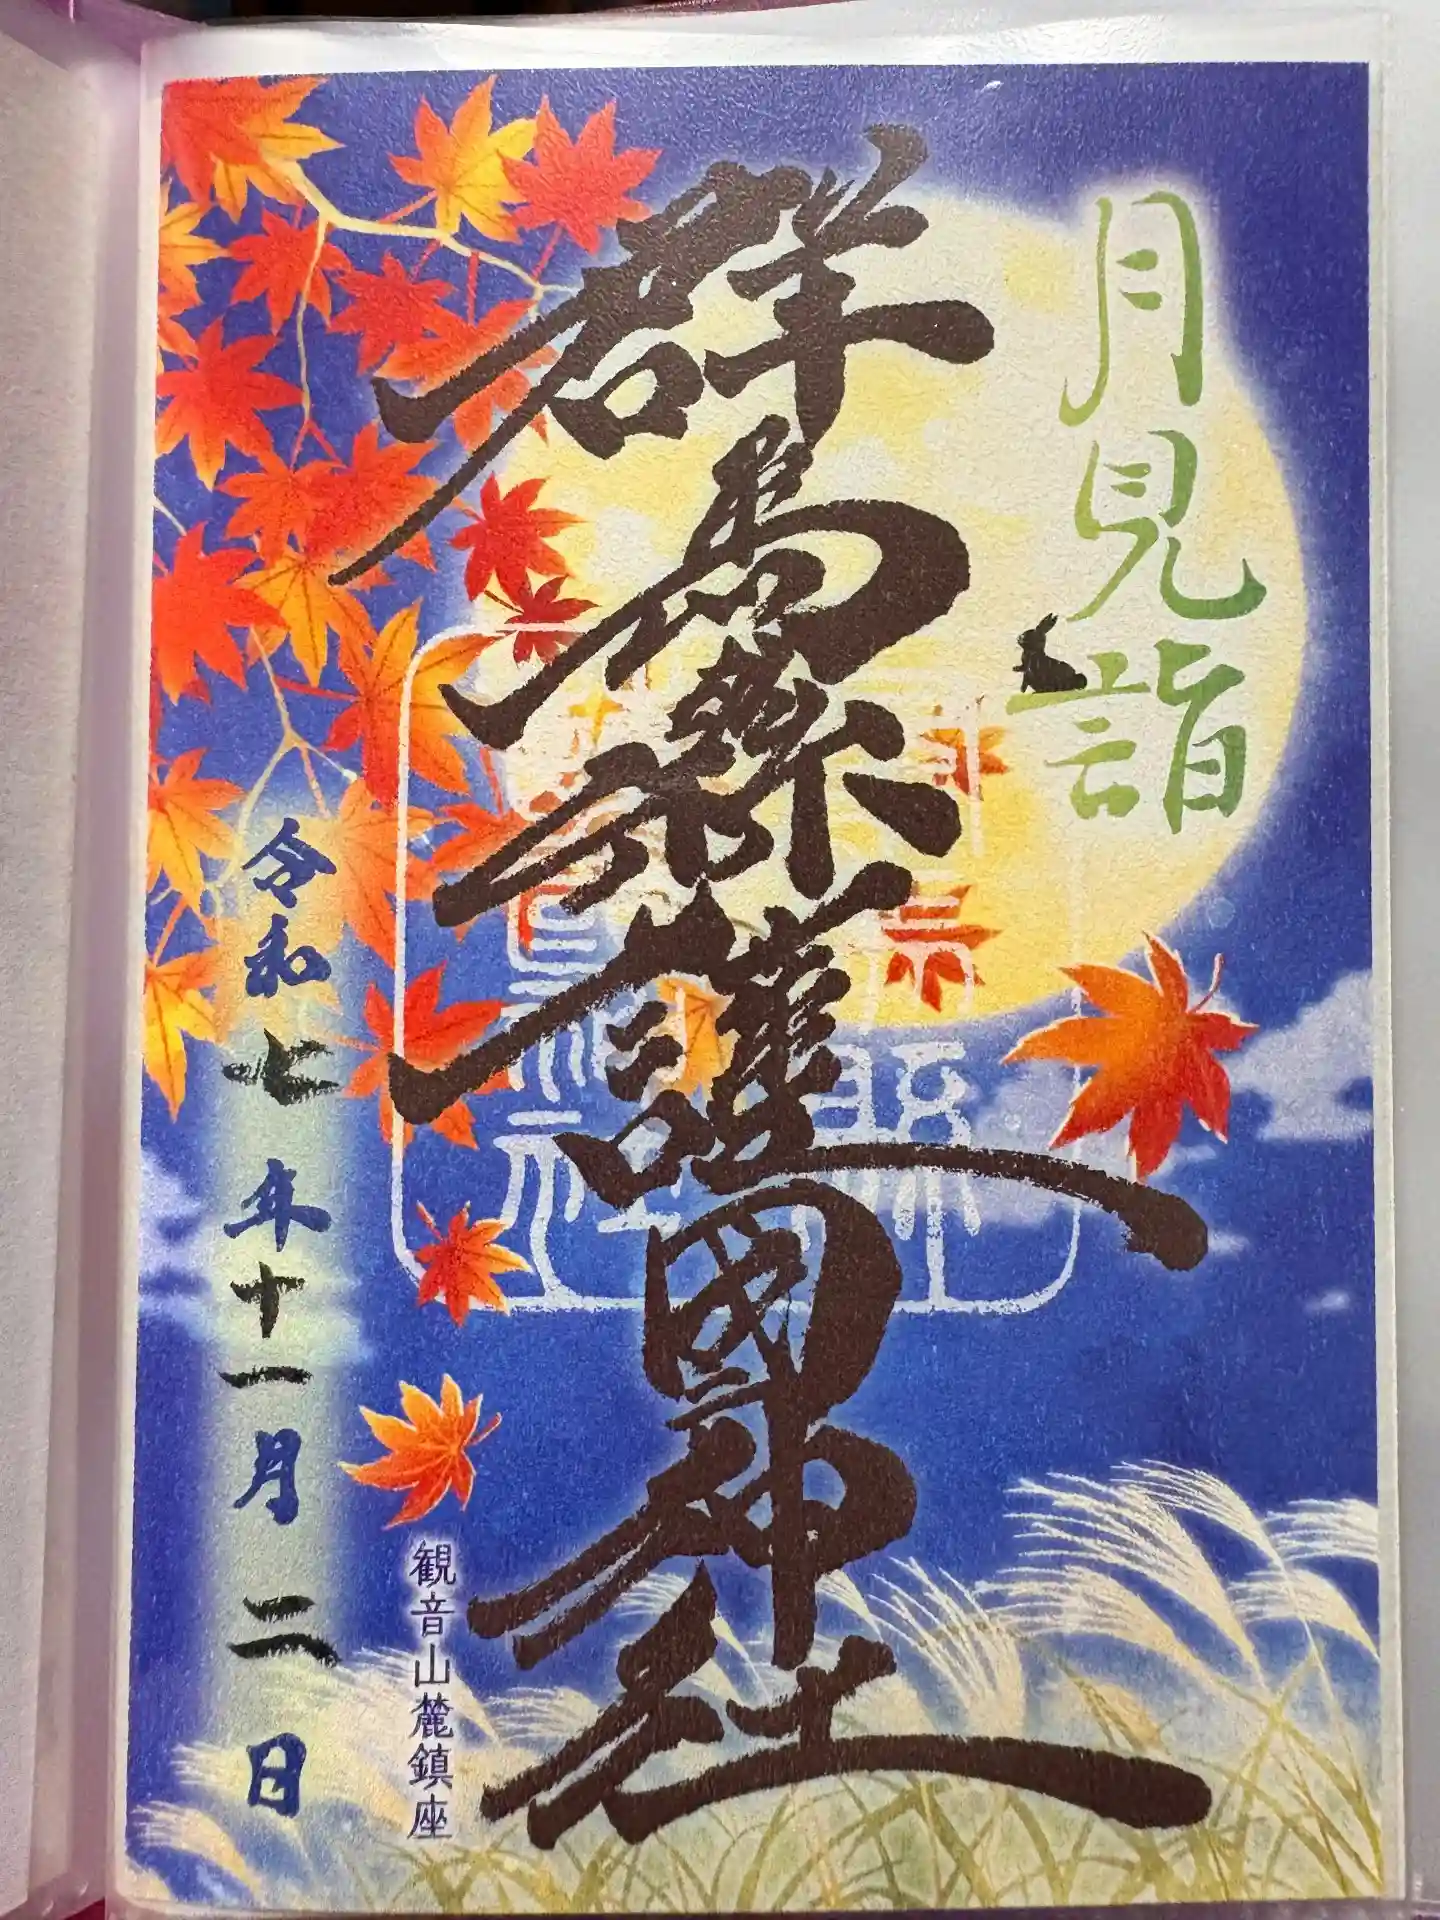 月見詣
群馬縣護國神社
観音山麓鎮座
令和七年十一月二日